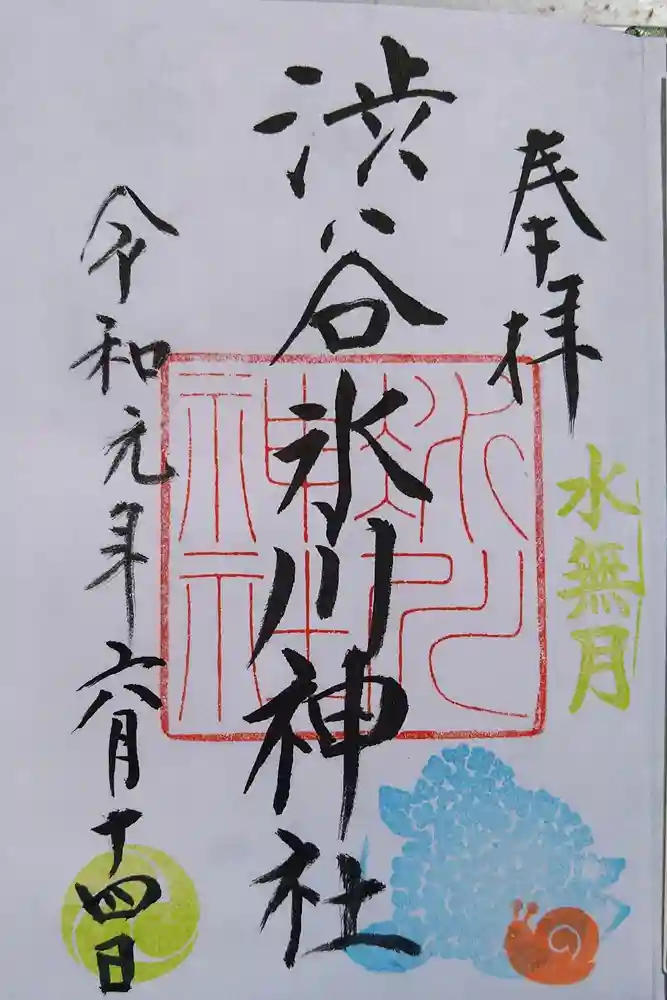 奉拝
水無月
渋谷氷川神社
令和元年六月十四日